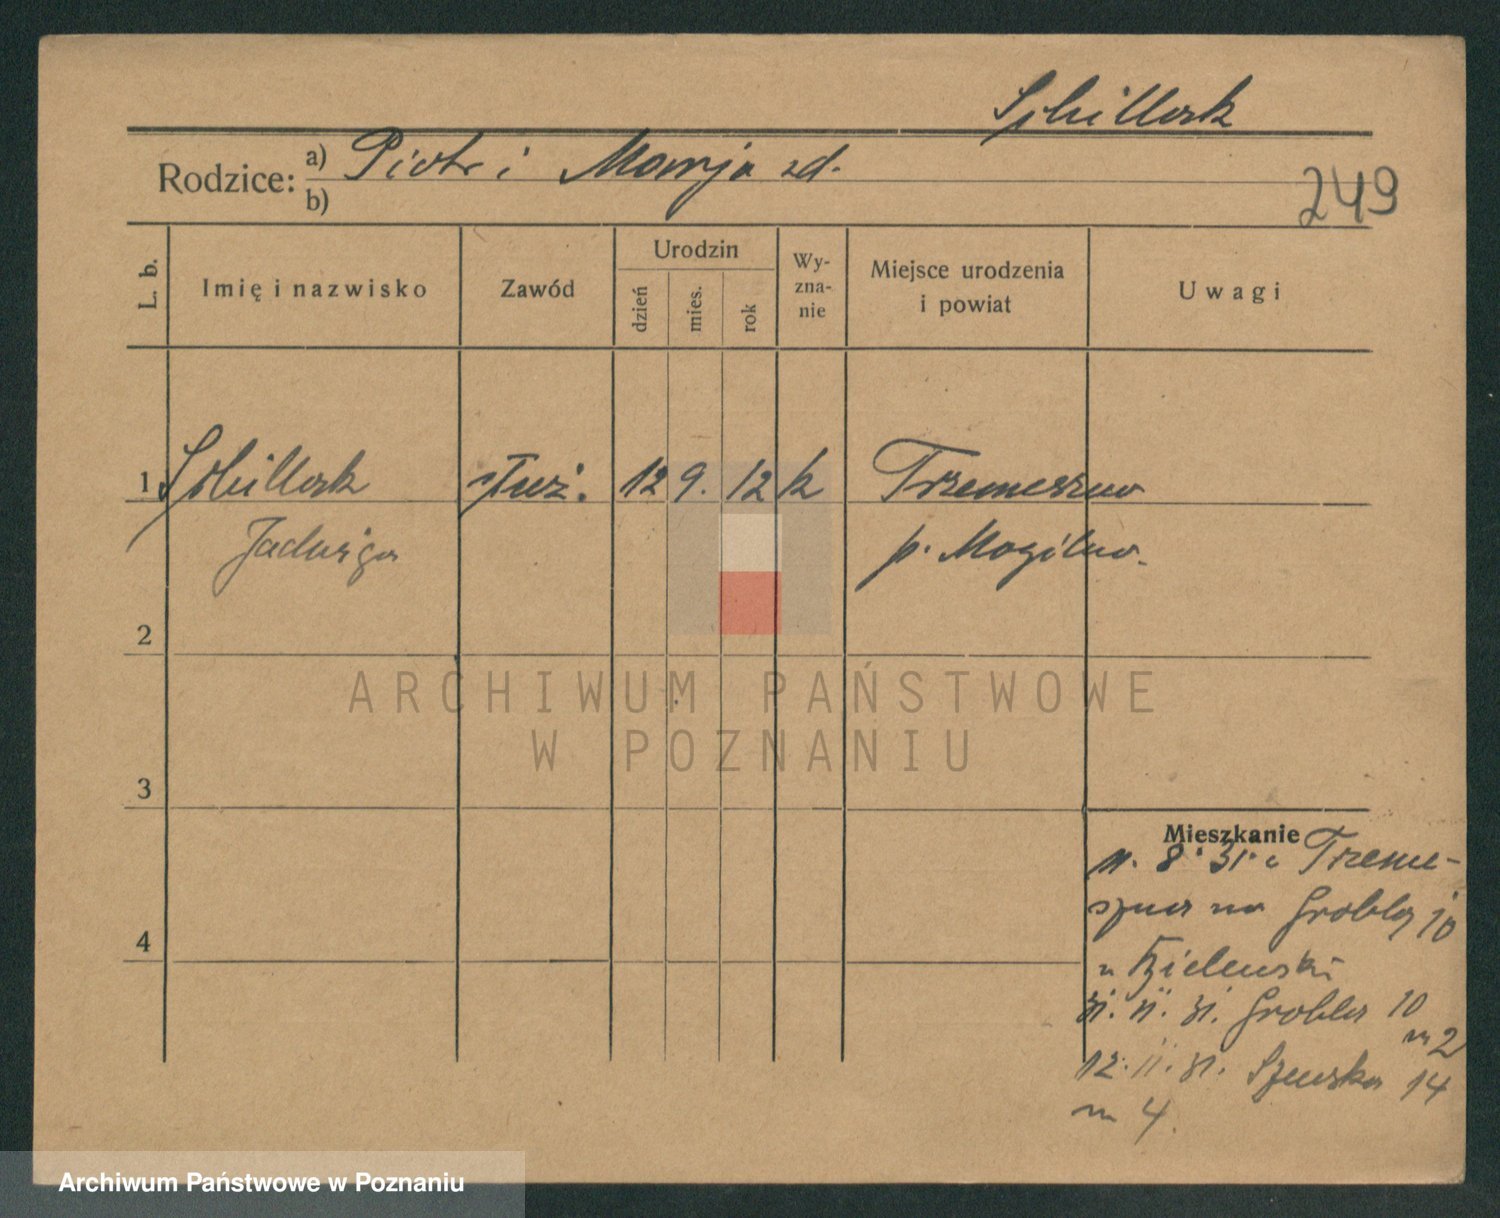 Rodzice: a) Piotr i Marja zd.
b)
249
L. b.
Imię i nazwisko
Zawód
Urodzin
dzień
mies.
rok
Wy-
zna-
nie
Miejsce urodzenia
i powiat
Uwagi
1 służ. 12 9. 12 k Trzemeszno
Jadwiga p. Mogilno.
2
ARCHIWUM PAŃSTWOWE
W POZNANIU
3
4
Mieszkanie
11. 8. 31. z Trzeme-
szna na Grobla 10
u
31. 11. 31. Grobla 10
m 2
12. 11. 31. Szewska 14
m 4.
Archiwum Państwowe w Poznaniu